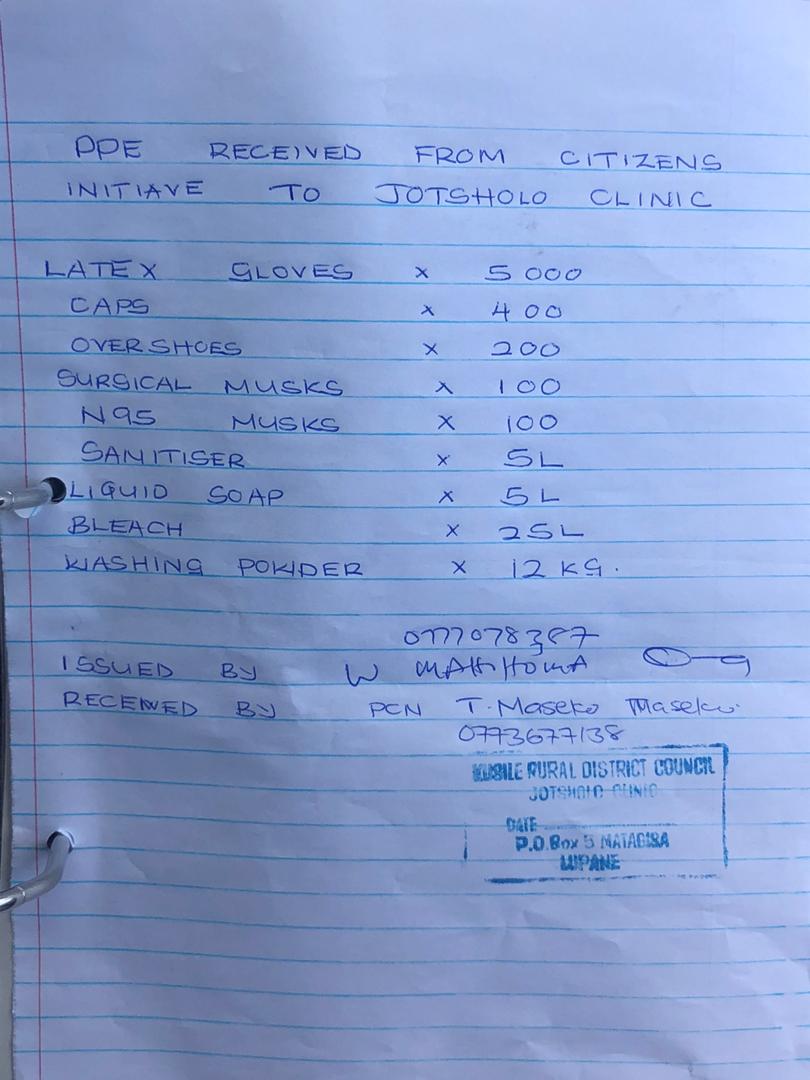 PPE RECEIVED FROM CITIZENS
INITIAVE TO JOTSHOLO CLINIC
LATEX GLOVES x 5 000
CAPS x 400
OVERSHOES x 200
SURGICAL MUSKS x 100
N95 MUSKS x 100
SANITISER x 5L
LIQUID SOAP x 5L
BLEACH x 25L
WASHING POWDER x 12 KG.
0777078387
ISSUED BY W
RECEIVED BY PCN T. Maseko Maseko
0773677138
KUSILE RURAL DISTRICT COUNCIL
JOTSHOLO CLINIC
DATE
P.O.Box 5 MATAGISA
LUPANE